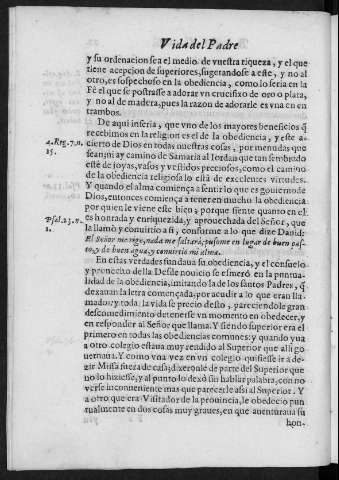 Vida del Padre
y su ordenacion sea el medio de vuestra riqueza, y el que
tiene acepcion de superiores, sugerandose a este, y no al
otro, es sospechoso en la obediencia, como lo seria en la
Fè el que se postrasse a adorar vn crucifixo de oro o plata,
y no al de madera, pues la razon de adorarle es vna en en-
trambos.
De aqui inferia, que vno de los mayores beneficios q̃
4. Reg. 7. n.
recebimos en la religion es el de la obediencia, y este a-
15.
cierto de Dios en todas nuestras cosas, por menudas que
sean; ni ay camino de Samaria al Iordan que tan sembrado
esté de joyas, vasos y vestidos preciosos, como el camino
de la obediencia religiosa lo està de excelentes virtudes.
Y quando el alma comença a sentir lo que es gouierno de
Dios, entonces comiença a tener en mucho la obediencia
por quien le viene este bien; porque siente quanto en el
Psal. 23. n.
es honrada y enriquezida, y aprouechada del Señor, que
1.
la llamò y conuirtio a si, conforme a lo que dize Dauid:
El Señor me rige, nada me faltará, pusome en lugar de buen pas-
to, y de buen agua, y conuirtio mi alma.
En estas verdades fundaua su obediencia, y el consuelo
y prouecho della Desde nouicio se esmerò en la puntua-
lidad de la obediencia, imitando la de los santos Padres, q̃
dexauan la letra començada, por acudir a lo que eran lla-
mados: y toda la vida se precio desto, pareciendole gran
descomedimiento detenerse vn momento en obedecer, y
en responder al Señor que llama. Y siendo superior era el
primero en todas las obediencias comunes: y quando yua
a otro colegio estaua muy rendido al Superior que alli go
uernaua. Y como vna vez en vn colegio quisiesse ir a de-
zir Missa fuera de casa; dixeronle de parte del Superior que
no lo hiziesse, y al punto lo dexò sin hablar palabra, con no
verse inconueniente mas que parecerle assi al Superior. Y
a otro que era Visitador de la prouincia, le obedecio pun
tualmente en dos cosas muy graues, en que auenturaua su
hon-